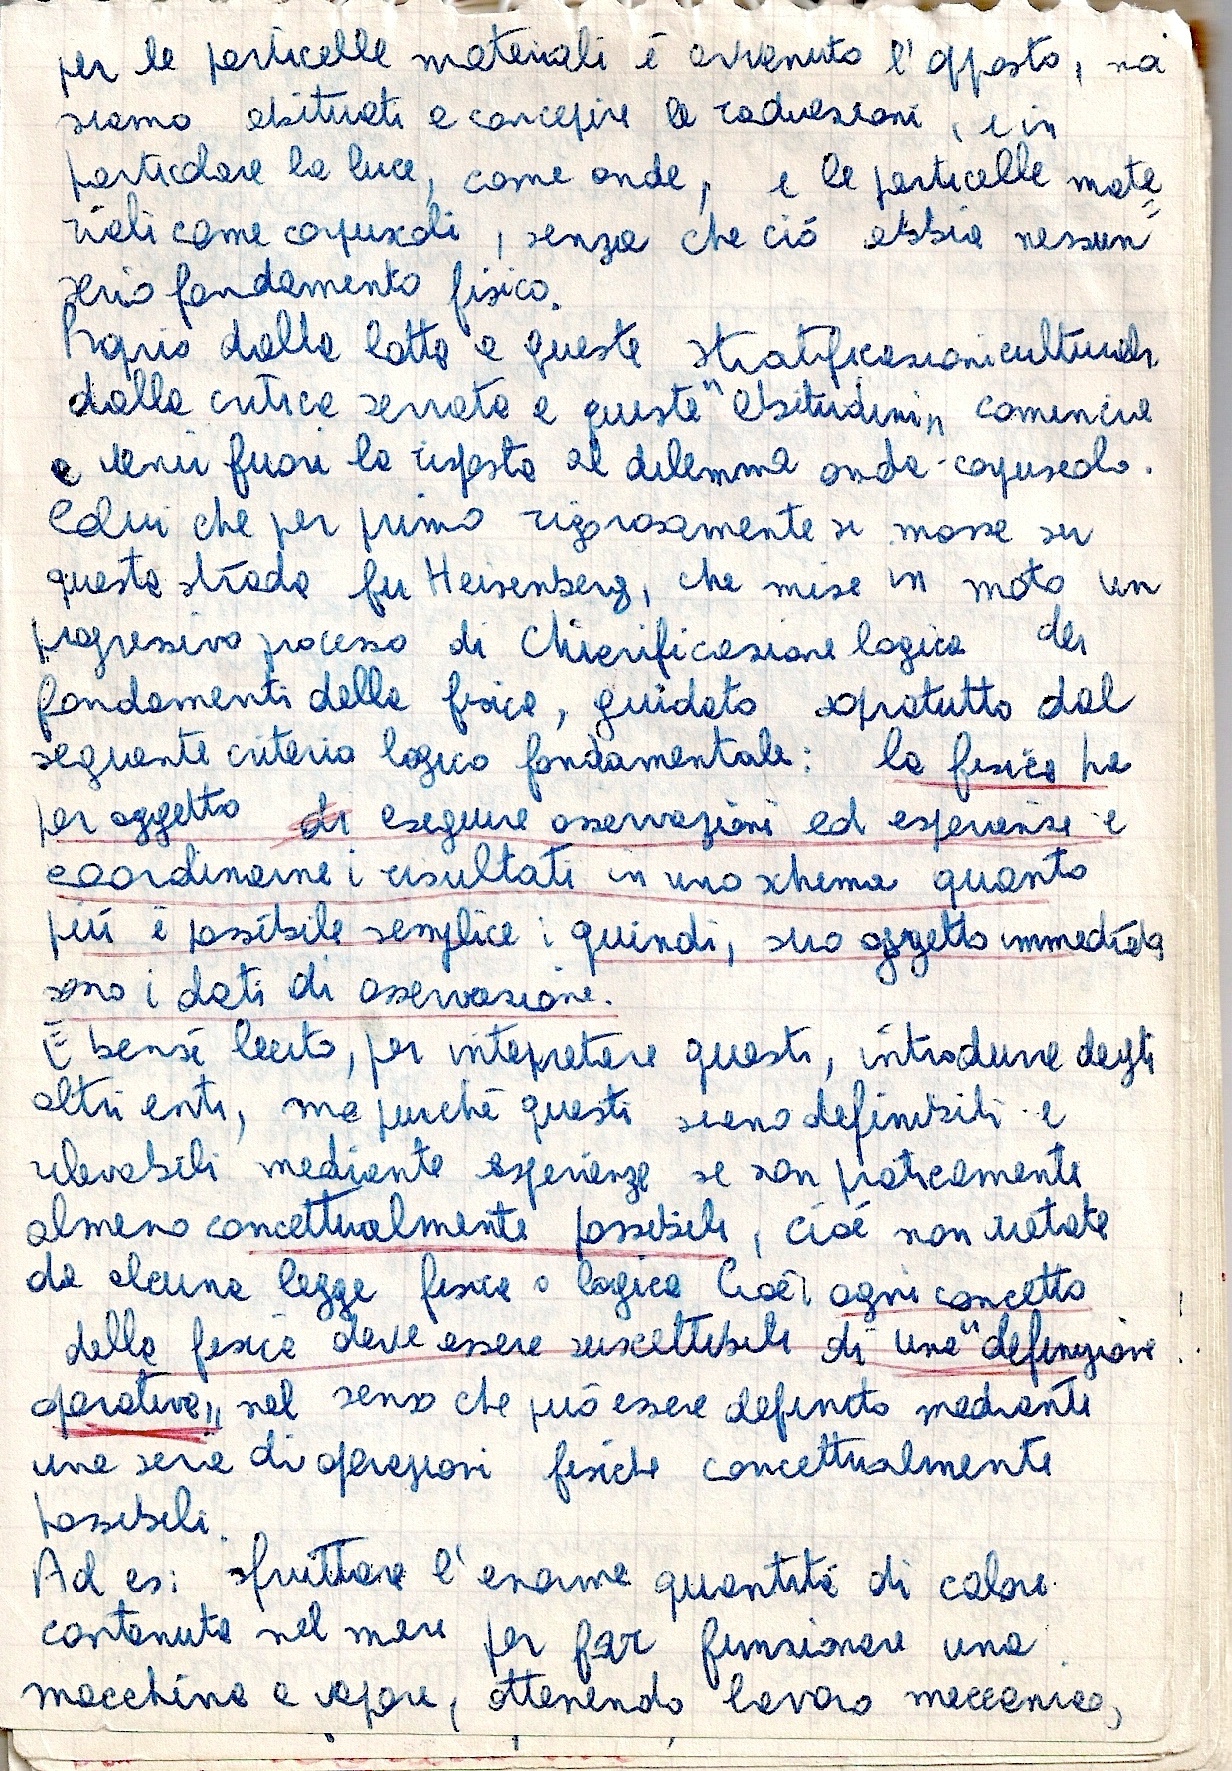 per le particelle materiali é avvenuto l'opposto, noi
siamo abituati a concepire le radiazioni, e in
particolare la luce, come onde, e le particelle mate=
riali come corpuscoli, senza che ció abbia nessun
serio fondamento fisico.
Proprio dalla lotta a queste stratificazioni culturali
dalla critica serrata a queste "abitudini" comincia
a venir fuori la risposta al dilemma onda-corpuscolo.
Colui che per primo rigorosamente si mosse su
questa strada fu Heisenberg, che mise in moto un
progressivo processo di Chiarificazione logica dei
fondamenti della fisica, guidato sopratutto dal
seguente criterio logico fondamentale: la fisica ha
per oggetto di eseguire osservazioni ed esperienze e
coordinarne i risultati in uno schema quanto
piú é possibile semplice; quindi, suo oggetto immediato
sono i dati di osservazione.
É bensí lecito, per intepretare questi, introdurre degli
altri enti, ma purché questi siano definibili e
rilevabili mediante esperienze se non praticamente
almeno concettualmente possibili, cioé non vietate
da alcuna legge fisica o logica Cioé: ogni concetto
della fisica deve essere suscettibile di una "definizione
operativa" nel senso che puó essere definito mediante
una serie di operazioni fisiche concettualmente
possibili.
Ad es: sfruttare l'enorme quantitá di calore
contenuta nel mare per far funzionare una
macchina a vapore, ottenendo lavoro meccanico,